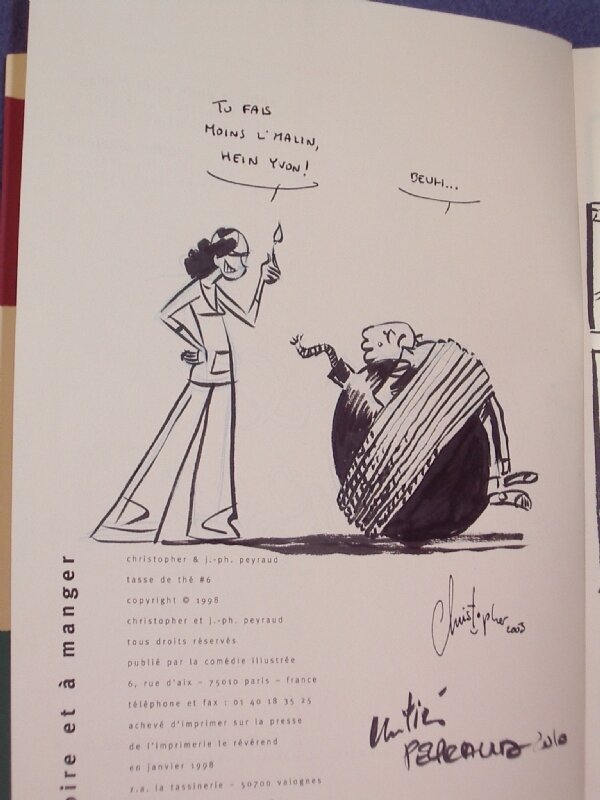 TU FAIS
MOINS L'MALIN,
HEIN YVON!
BEUH...
christopher & j.-ph. peyraud
tasse de thé #6
copyright © 1998
christopher et j.-ph. peyraud
tous droits réservés
publié par la comédie illustrée
6, rue d'aix – 75010 paris – france
téléphone et fax : 01 40 18 35 25
achevé d'imprimer sur la presse
de l'imprimerie le révérend
en janvier 1998
z.a. la tassinerie – 50700 valognes
oire et à manger
Christopher 2003
PEYRAUD